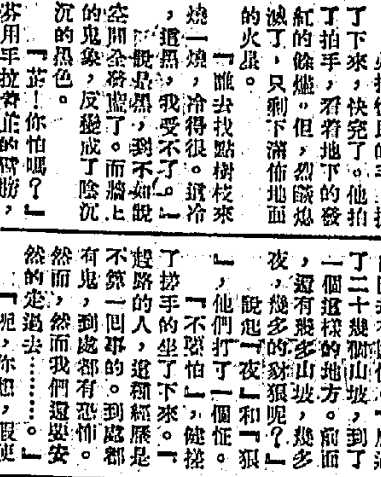 了下來，快完了。他拍
了拍手，看着地下的發
紅的餘燼。但，烈燄熄
滅了，只剩下滿佈地面
的火星。
『誰去找點樹枝來
燒一燒，冷得很。這冷
，這黑，我受不了。』
說是黑，到不如說
空間全發藍了。而牆上
的鬼象，反變成了陰沉
沉的黑色。
『芷！你怕嗎？』
芬用手拉着芷的臂膀，
了二十幾個山坡，到了
一個這樣的地方。前面
，還有幾多山坡，幾多
夜，幾多的豺狼呢？』
說起『夜』和『狼
』，他們打了一個怔。
『不要怕』，健搓
了搓手的坐了下來。『
趕路的人，這種經歷是
不算一回事的。到處都
有鬼，到處都有恐怖。
然而，然而我們還要安
然的走過去………。』
『呃，你想，假使